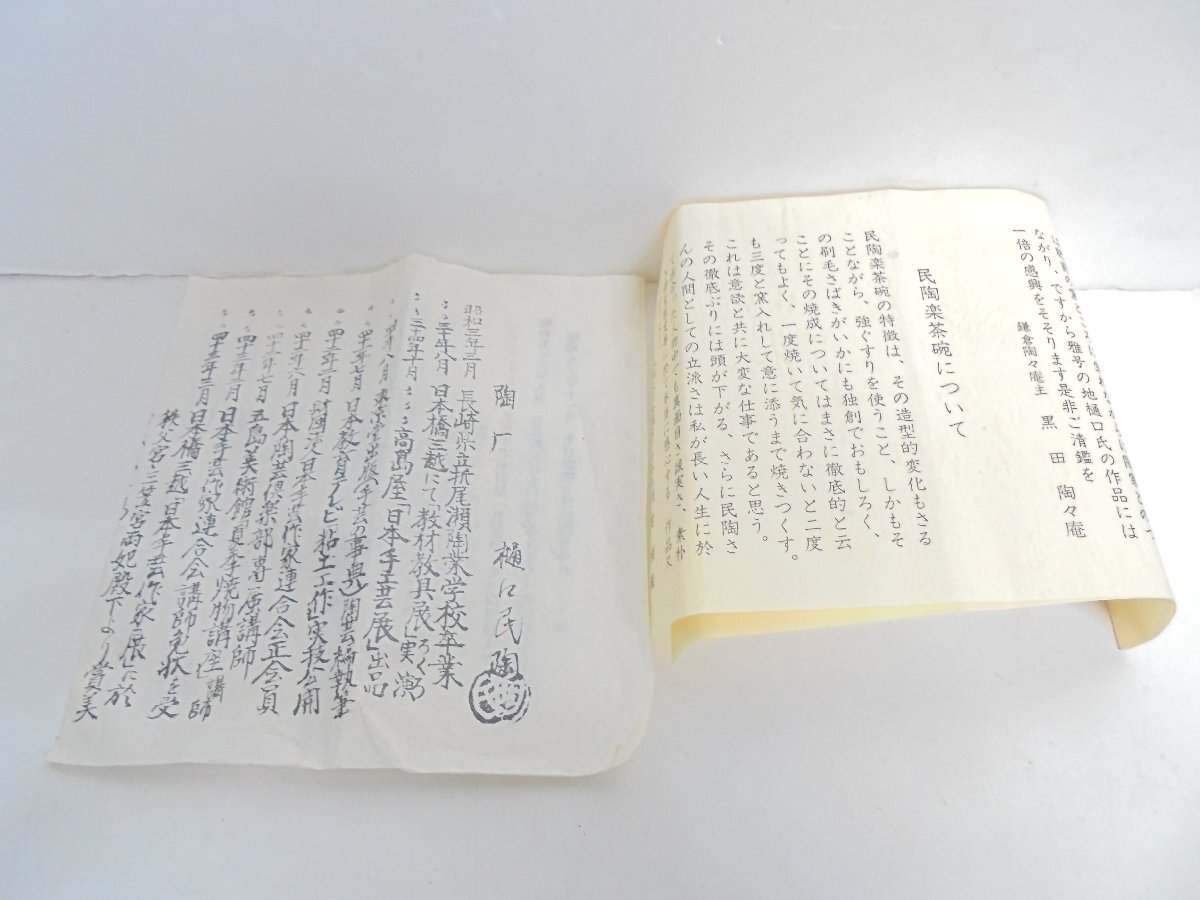 ながり、ですから雅号の地樋口氏の作品には
一倍の感興をそそります是非ご清鑑を
鎌倉陶々庵主 黒田陶々庵
民陶楽茶碗について
民陶楽茶碗の特徴は、その造型的変化もさる
ことながら、強ぐすりを使うこと、しかもそ
の刷毛さばきがいかにも独創でおもしろく、
ことにその焼成についてはまさに徹底的と云
つてもよく、一度焼いて気に合わないと二度
も三度と窯入れして意に添うまで焼きつくす。
これは意欲と共に大変な仕事であると思う。
その徹底ぶりには頭が下がる、さらに民陶さ
んの人間としての立派さは私が長い人生に於
陶 樋口民陶
昭和三年三月 長崎県立折尾瀬陶業学校卒業
〃三十年八月 日本橋三越にて「教材教具展」ろくろ実演
〃三十四年十月 〃 高島屋「日本手工芸展」出品
手芸の事典」陶芸編執筆
七月 日本教育テレビ「粘土工作」実技公開
日本手芸作家連合会正会員
日本陶芸倶楽部専属講師
七月 五島美術館夏季焼物講座講師
日本手芸作家連合会講師免状を受
三月 日本橋三越「日本手芸作家展」に於
秩父宮、三笠宮両妃殿下より賞美